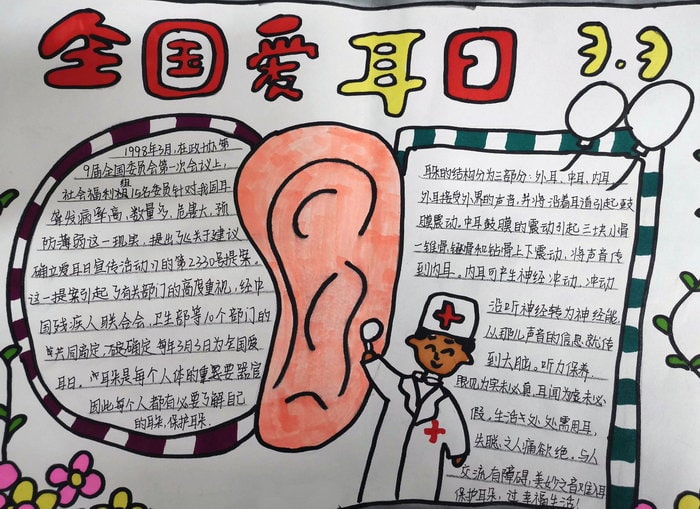 全国爱耳日 3.3
1998年3月,在政协第
9届全国委员会第一次会议上,
社会福利组15名委员针对我国耳
聋发病率高、数量多、危害大、预
防薄弱这一现实,提出了《关于建议
确立爱耳日宣传活动》的第2330号提案。
这一提案引起了有关部门的高度重视,经中
国残疾人联合会、卫生部等10个部门的
共同商定,确定每年3月3日为全国爱
耳日。耳朵是每个人体的重要器官
因此每个人都有必要了解自己
的耳朵,保护耳朵.
耳朵的结构分为三部分:外耳、中耳、内耳
外耳接受外界的声音,并将沿着耳道引起鼓
膜震动。中耳鼓膜的震动引起三块小骨
一锥骨锤骨和骨上下震动,将声音传
到内耳。内耳可产生神经冲动、冲动
沿听神经转为神经能,
从那儿声音的信息就传
到大脑。听力保养
眼见为实未必真,耳闻为虚未必
假。生活之处处需用耳,
失聪之人痛欲绝。与人
交流有障碍,美妙之音难入耳
保护耳朵,过幸福生活!